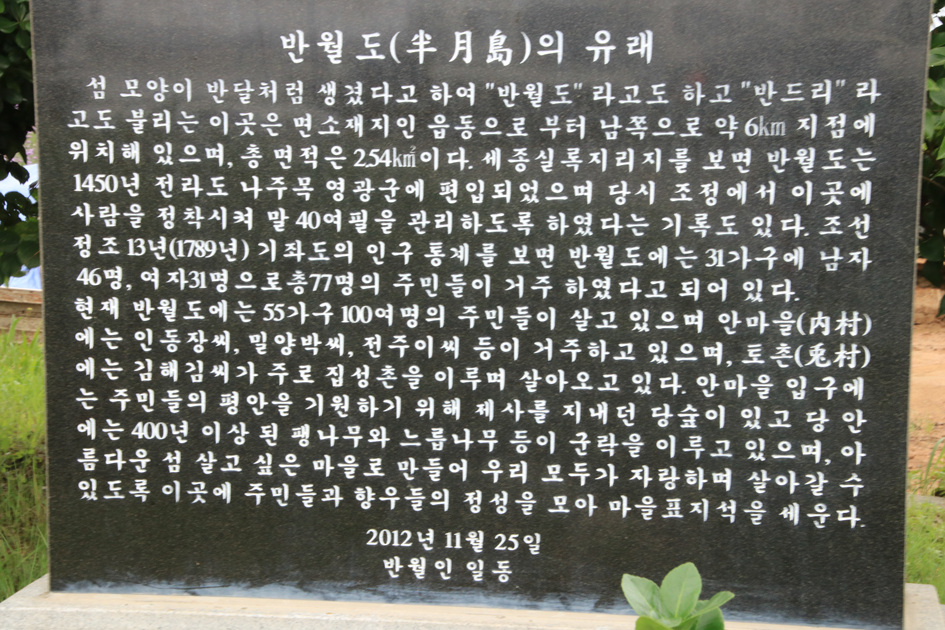 반월도(半月島)의 유래
섬 모양이 반달처럼 생겼다고 하여 "반월도" 라고도 하고 "반드리" 라
고도 불리는 이곳은 면소재지인 읍동으로 부터 남쪽으로 약 6㎞ 지점에
위치해 있으며, 총 면적은 2.54㎢이다. 세종실록지리지를 보면 반월도는
1450년 전라도 나주목 영광군에 편입되었으며 당시 조정에서 이곳에
사람을 정착시켜 말 40여필을 관리하도록 하였다는 기록도 있다. 조선
정조 13년(1789년) 기좌도의 인구 통계를 보면 반월도에는 31가구에 남자
46명, 여자31명으로총77명의 주민들이 거주 하였다고 되어 있다.
현재 반월도에는 55가구 100여명의 주민들이 살고 있으며 안마을(内村)
에는 인동장씨, 밀양박씨, 전주이씨 등이 거주하고 있으며, 토촌(兎村)
에는 김해김씨가 주로 집성촌을 이루며 살아오고 있다. 안마을 입구에
는 주민들의 평안을 기원하기 위해 제사를 지내던 당숲이 있고 당 안
에는 400년 이상 된 팽나무와 느릅나무 등이 군락을 이루고 있으며, 아
름다운 섬 살고 싶은 마을로 만들어 우리 모두가 자랑하며 살아갈 수
있도록 이곳에 주민들과 향우들의 정성을 모아 마을표지석을 세운다.
2012년 11월 25일
반월인 일동